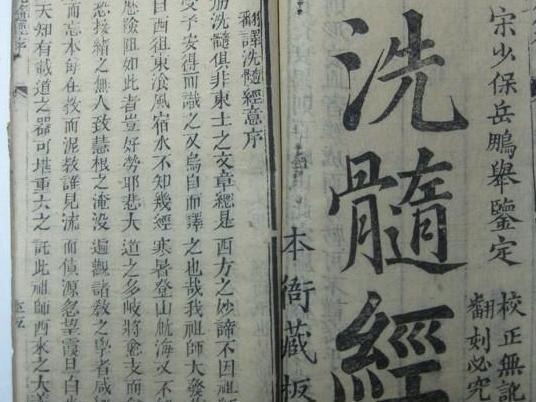 宋少保岳鵬舉鑒定
校正無訛
翻刻必究
洗髓經
本衙藏板
翻譯洗髓經意序
筋洗髓俱非東土之文章總是西方之妙諦不因祖師
受予安得而識之又烏自而譯之也哉我祖師大發
自西徂東飡風宿水不知幾經寒暑登山航海又不知
險阻如此者豈好勞耶悲大道之多岐將愈支而
恐接緒之無人致慧根之淹没遍觀諸教之學者咸
而忘本每在教而泥教誰見流而源忽望霞旦白
天知有載道之器可堪重大之託此祖師西來之大
髓經序